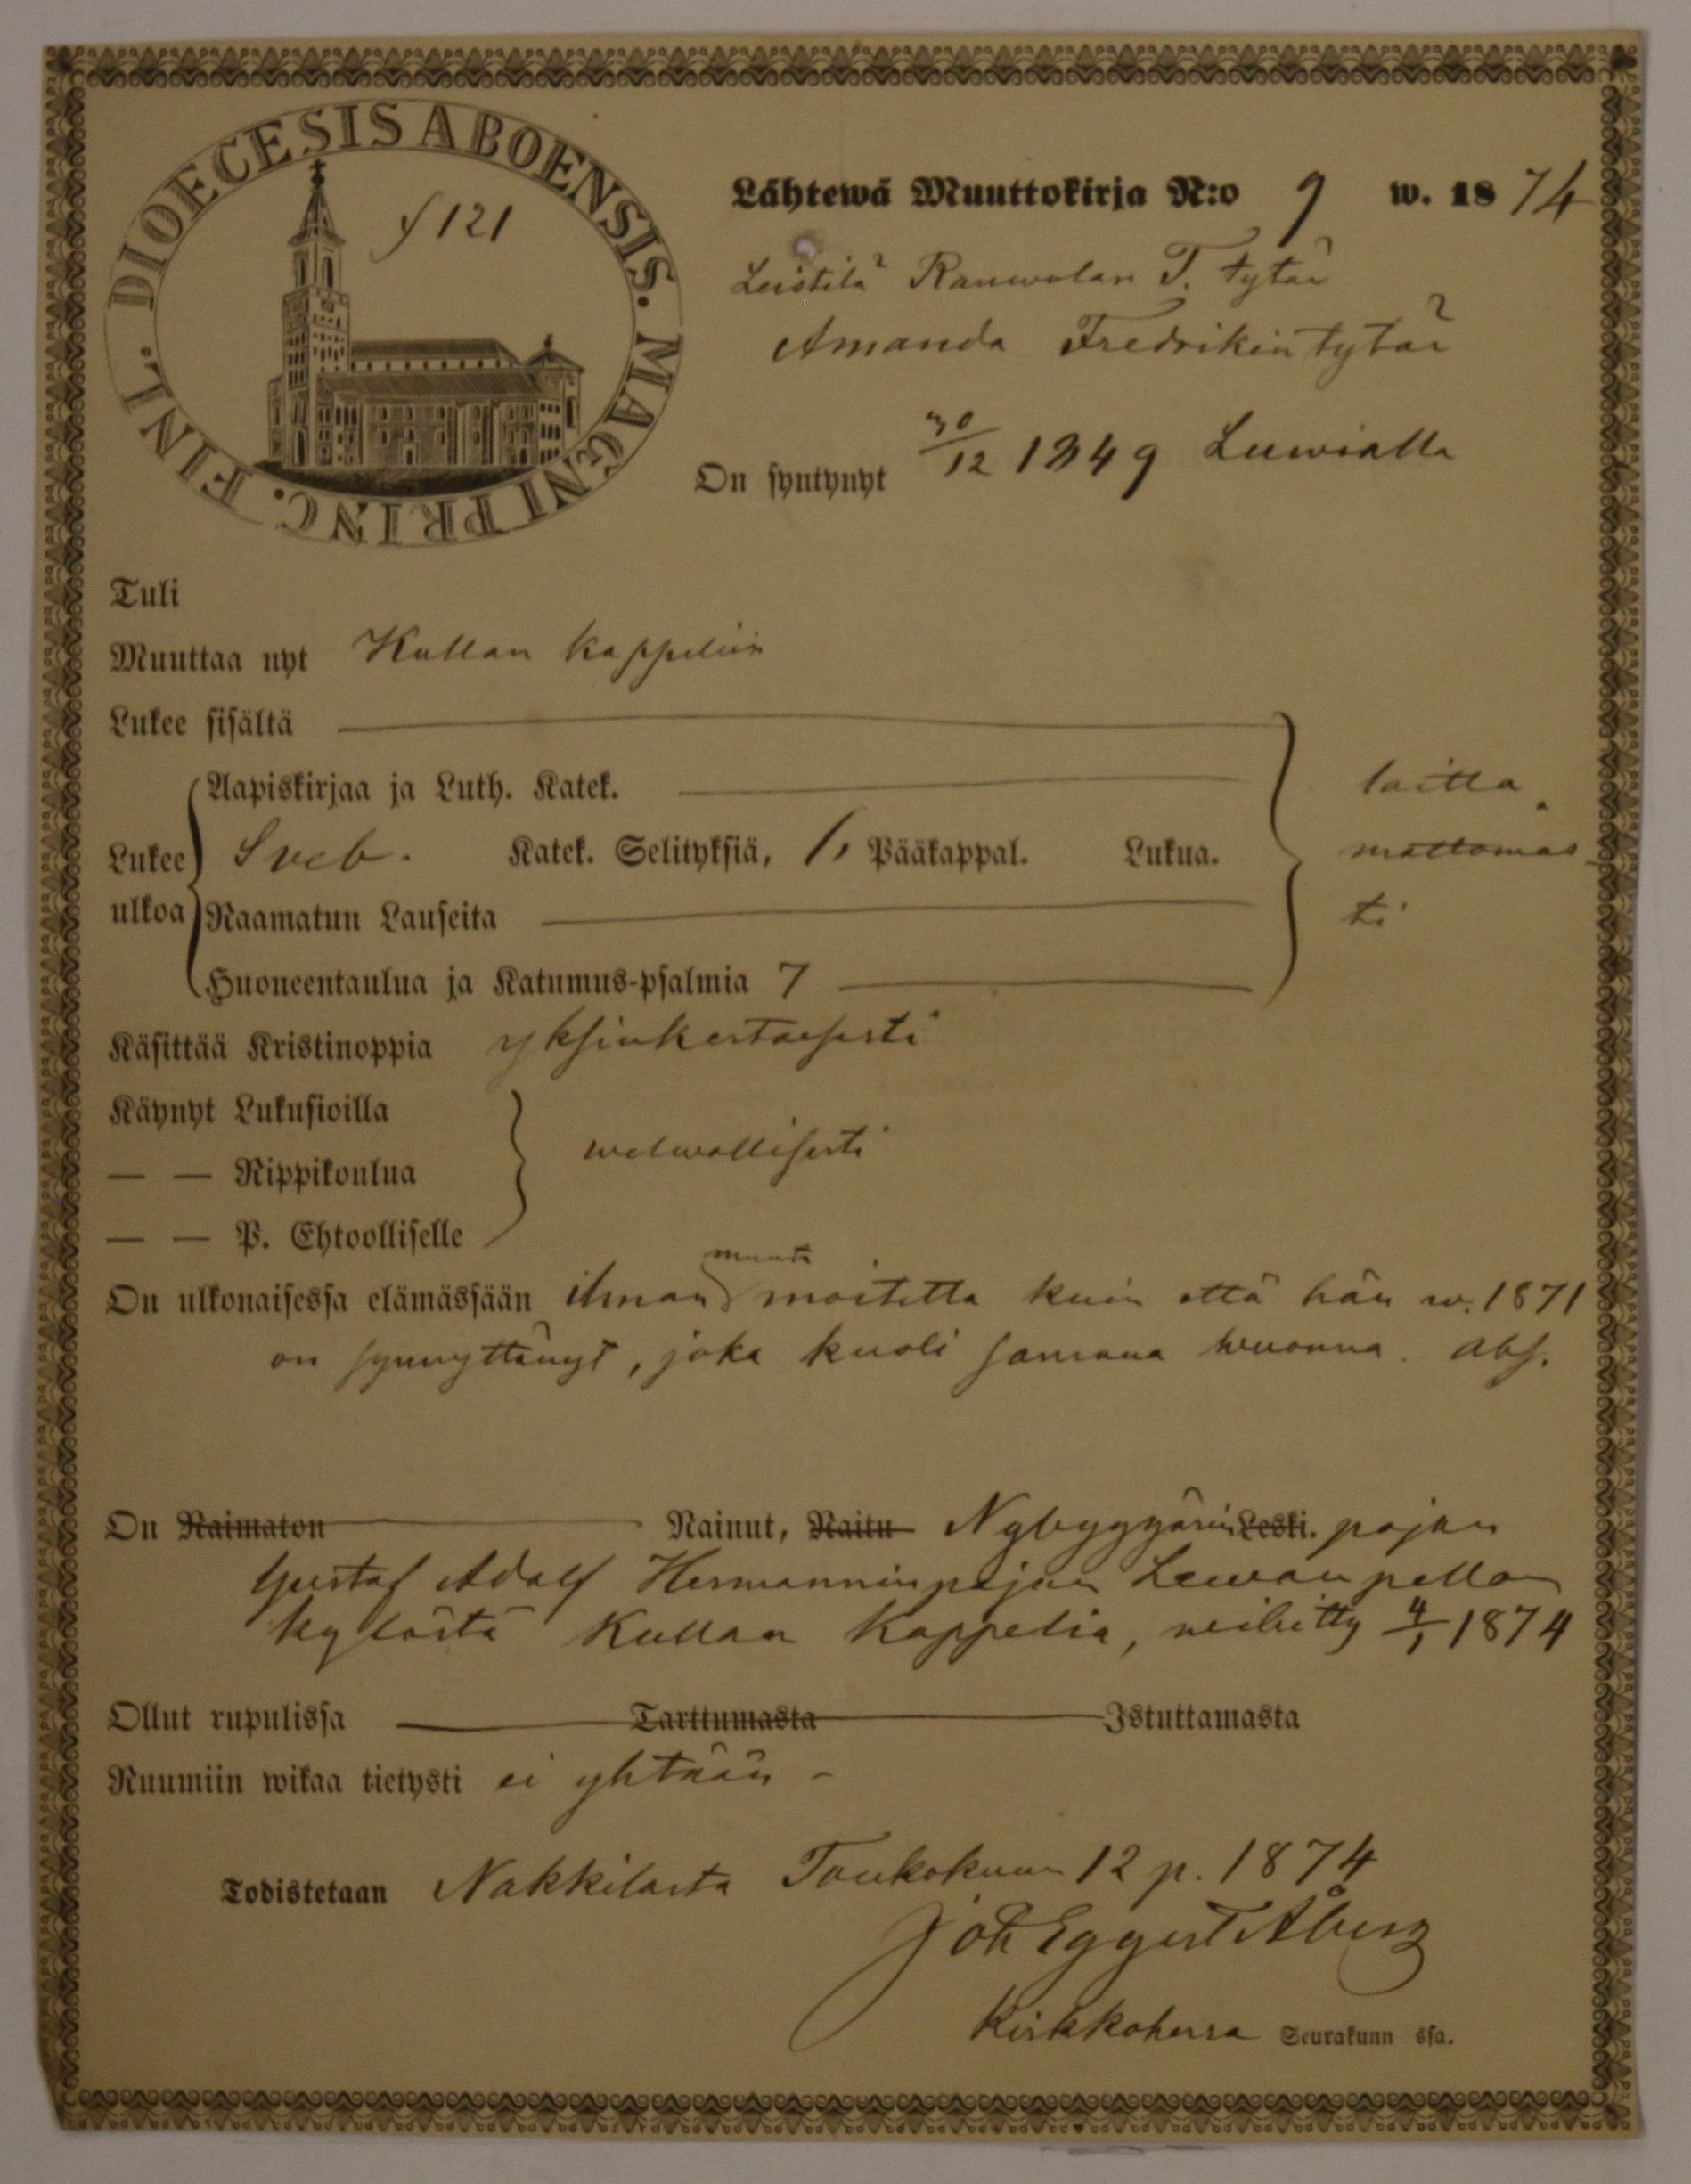 DIOECESIS ABOENSIS. MAGNI PRINC. FINL.
f 121
Lähtewä Muuttokirja N:o 9 w. 1874
Leistilä Rauwolan T. tytär
Amanda Fredrikintytär
On syntynyt 30/12 1849 Luwialla
Tuli
Muuttaa nyt Kullan kappeliin
Lukee sisältä
Aapiskirjaa ja Luth. Katek. laitta
Lukee Sveb. Katek. Selityksiä, Pääkappal. Lukua. mattomas
ulkoa Raamatun Lauseita ti
Huoneentaulua ja Katumus-psalmia 7
Käsittää Kristinoppia yksinkertaisesti
Käynyt Lukusioilla
— — Rippikoulua welwollisesti
— — P. Ehtoolliselle
On ulkonaisessa elämässään ilman muuta moitetta kuin että hän w. 1871
on synnyttänyt, joka kuoli samana wuonna. abs.
On Naimaton Nainut, Naitu Nybyggärin Leski. pojan
Gustaf Adolf Hermanninpojan Lewanpellon
kylästä Kullan kappelia, wihitty 4/1 1874
Ollut rupulissa Tarttumasta Istuttamasta
Ruumiin wikaa tietysti ei yhtään –
Todistetaan Nakkilasta Toukokuun 12 p. 1874
Joh Eggert Åberg
Kirkkoherra Seurakunn ssa.